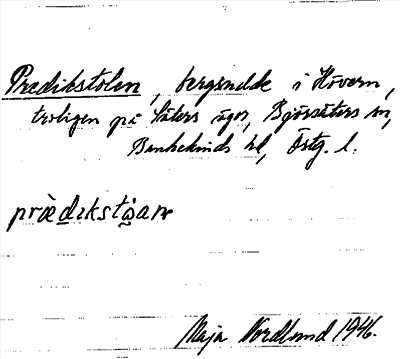 Predikstolen, bergsudde i Hövern,
troligen på Säters ägor, Björsäters sn,
Bankekinds hd, Östg. l.
prὲdikstɷ̀an
Maja Nordlund 1946.